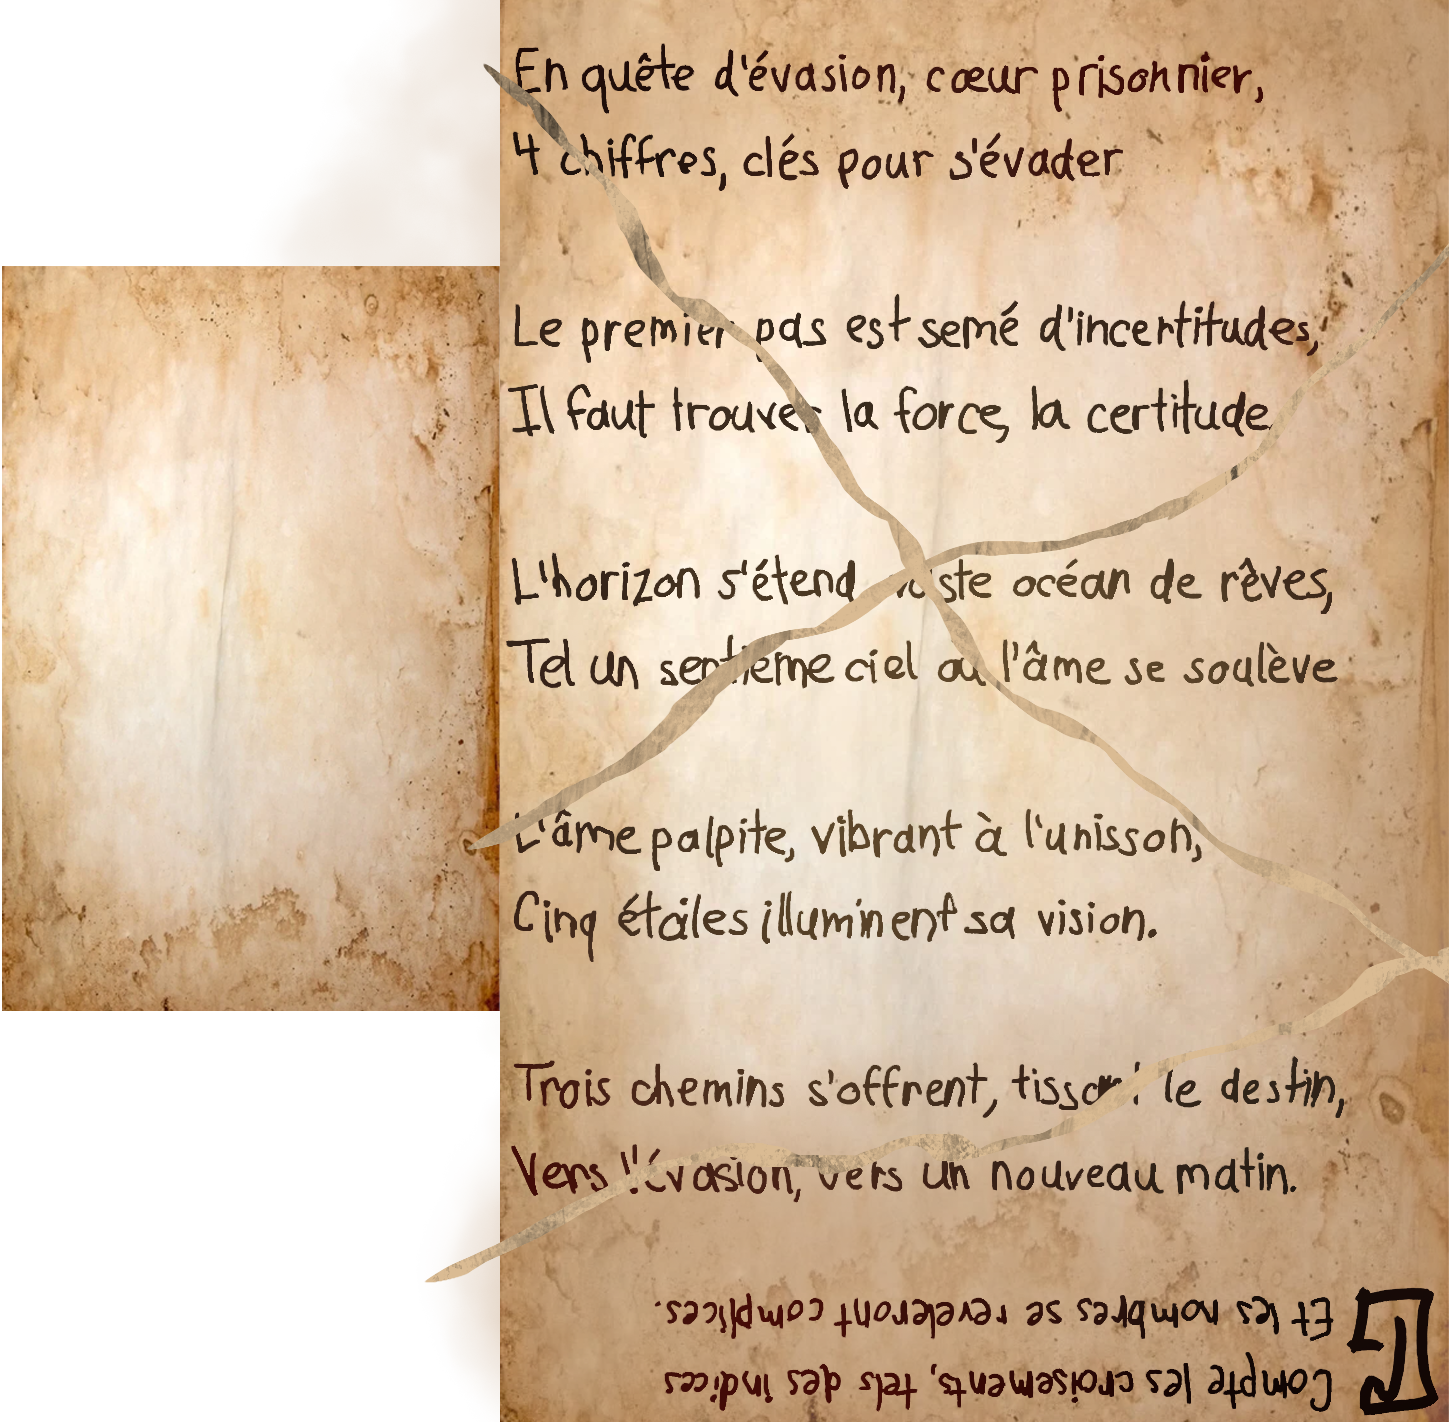 En quête d'évasion, cœur prisonnier,
4 chiffres, clés pour s'évader
Le premier pas est semé d'incertitudes,
Il faut trouver la force, la certitude
L'horizon s'étend vaste océan de rêves,
Tel un septième ciel où l'âme se soulève
L'âme palpite, vibrant à l'unisson,
Cinq étoiles illuminent sa vision.
Trois chemins s'offrent, tissant le destin,
Vers l'évasion, vers un nouveau matin.
Compte les croisements, tels des indices
Et les nombres se reveleront complices.